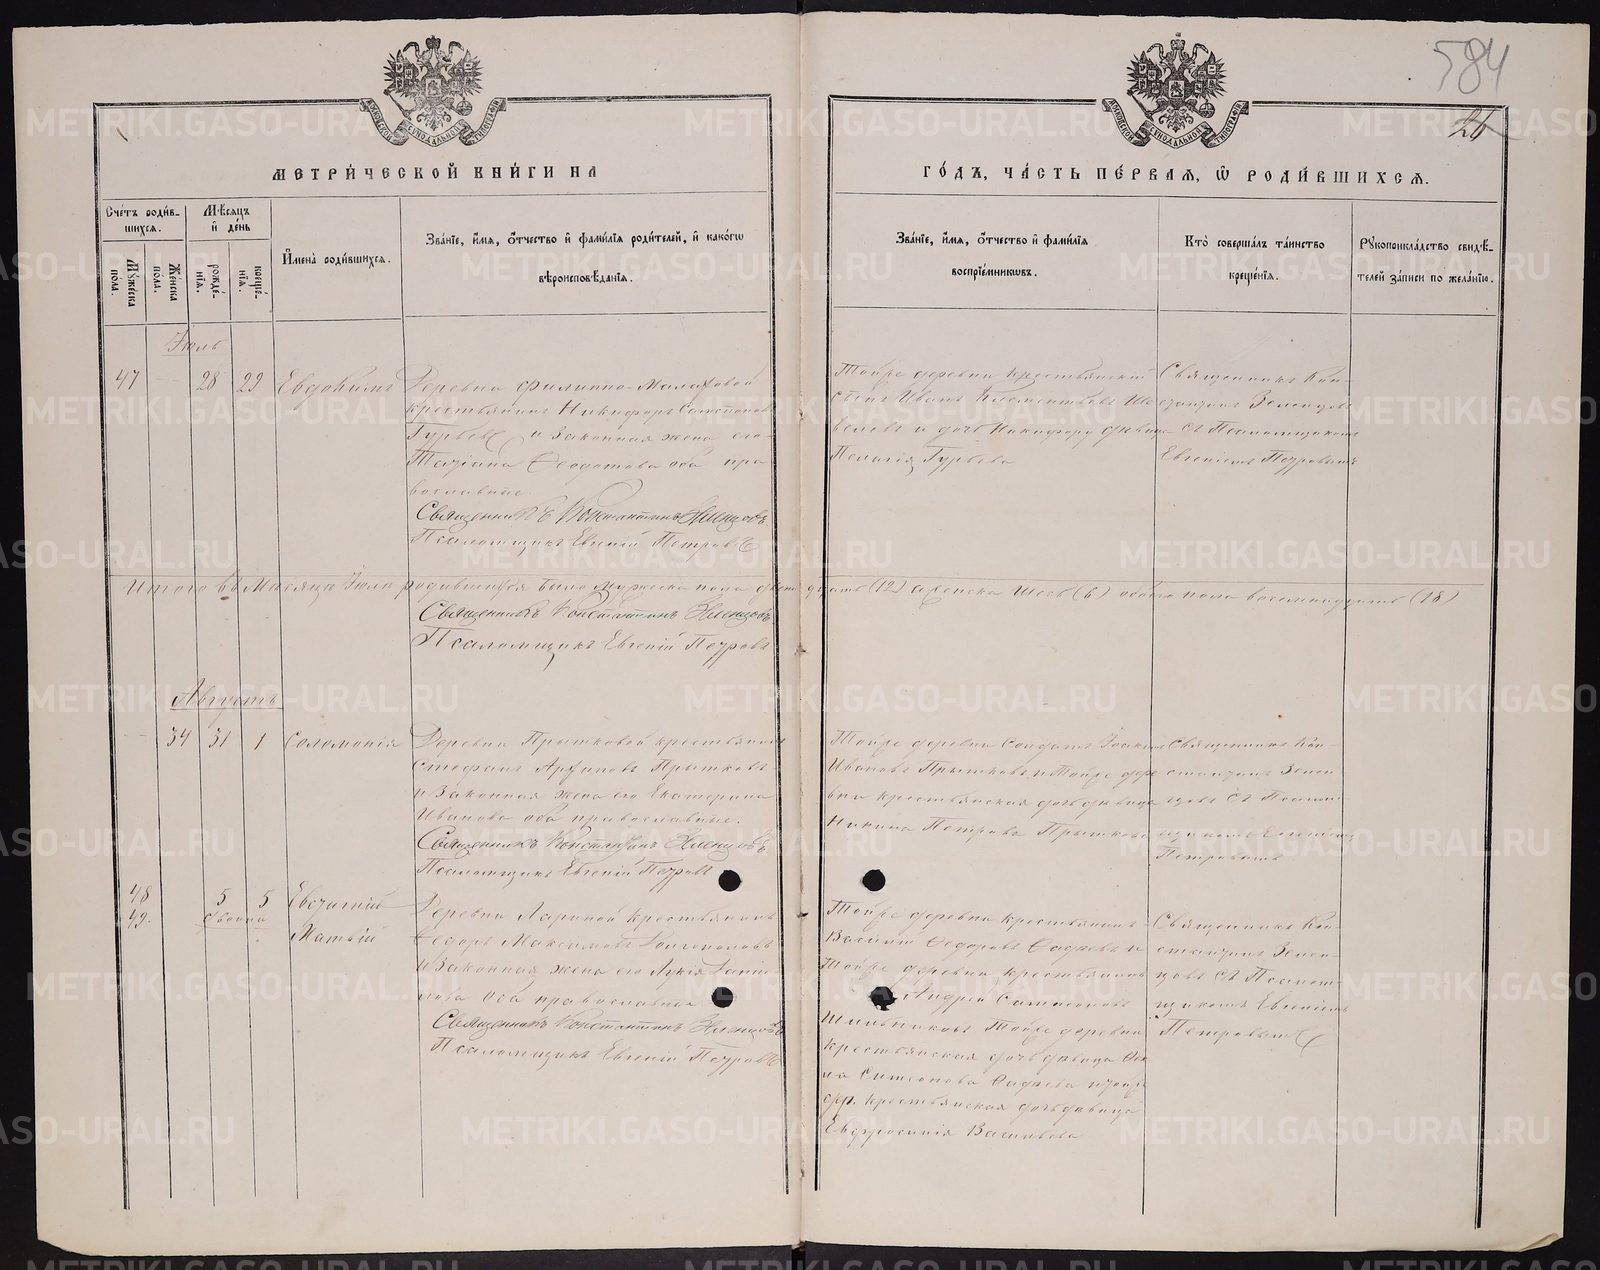 584
26
МОСКОВСКОЙ СѴНОДАЛЬНОЙ ТИПОГРАФІИ
МОСКОВСКОЙ СѴНОДАЛЬНОЙ ТИПОГРАФІИ
МЕТРИ́ЧЕСКОЙ КНИ́ГИ НА
ГО́ДЪ, ЧА́СТЬ ПЕ́РВАѦ, Ѡ РОДИ́ВШИХСѦ.
Сче́тъ роди́в-
шихсѧ.
Мꙋ́жеска по́ла.
Же́нска по́ла.
Мѣ́сѧцъ
и҆ де́нь
рожде́-
нїѧ.
креще́-
нїѧ.
И҆мена̀ роди́вшихсѧ.
Зва́нїе, и҆́мѧ, ѻ҆́тчество и҆ фами́лїѧ роди́телей, и҆ како́гѡ
вѣроисповѣ́данїѧ.
Зва́нїе, и҆́мѧ, ѻ҆́тчество и҆ фами́лїѧ
воспрїе́мникѡвъ.
Кто̀ соверша́лъ та́инство
креще́нїѧ.
Рꙋкоприкла́дство свидѣ́-
телей за́писи по жела́нїю.
Іюль
47 28 29 Евдокимъ
Деревни Филиппо-Малаховой
крестьянинъ Никифоръ
Гурьевъ и законная жена его
Татіана Ѳеодотова оба пра
вославные.
Священникъ Константинъ Зеленцовъ
Псаломщикъ Евгеній Петровъ
Тойже деревни крестьянскій
сынъ Иванъ Климентьевъ Ше
велевъ и дочь Никифора дѣвица
Пелагія Гурьева
Священникъ Кон-
стантинъ Зеленцовъ
съ Псаломщикомъ
Евгеніемъ Петровымъ
Итого въ Мѣсяцѣ Іюлѣ родившихся было мужеска пола двенадцать (12) а женска шесть (6) обоего пола восемнадцать (18)
Священникъ Константинъ Зеленцовъ
Псаломщикъ Евгеній Петровъ
Августъ
34 31 1 Соломонія
Деревни Прытковой крестьянинъ
Стефанъ Архиповъ Прытковъ
и законная жена его Екатерина
Иванова оба православные.
Священникъ Константинъ Зеленцовъ
Псаломщикъ Евгеній Петровъ
Тойже деревни солдатъ Іоакимъ
Ивановъ Прытковъ и тойже дере
вни крестьянская дочь дѣвица
Петрова Прыткова
Священникъ Кон-
стантинъ Зелен
цовъ съ Псалом-
щикомъ Евгеніемъ
Петровымъ
48 5 5 Евстигній
49. двойни
Матвій
Деревни Лариной крестьянинъ
Ѳедоръ Максимовъ
и законная жена его Лукія
оба православные
Священникъ Константинъ Зеленцовъ
Псаломщикъ Евгеній Петровъ
Тойже деревни крестьянинъ
Василій Ѳедоровъ и
тойже деревни крестьянинъ
Андрей Самсоновъ
тойже деревни
крестьянская дочь дѣвица
на и тойже
дер. крестьянская дочь дѣвица
Евфросинія Васильева
Священникъ Кон-
стантинъ Зелен-
цовъ съ Псалом-
щикомъ Евгеніемъ
Петровымъ
METRIKI.GASO-URAL.RU